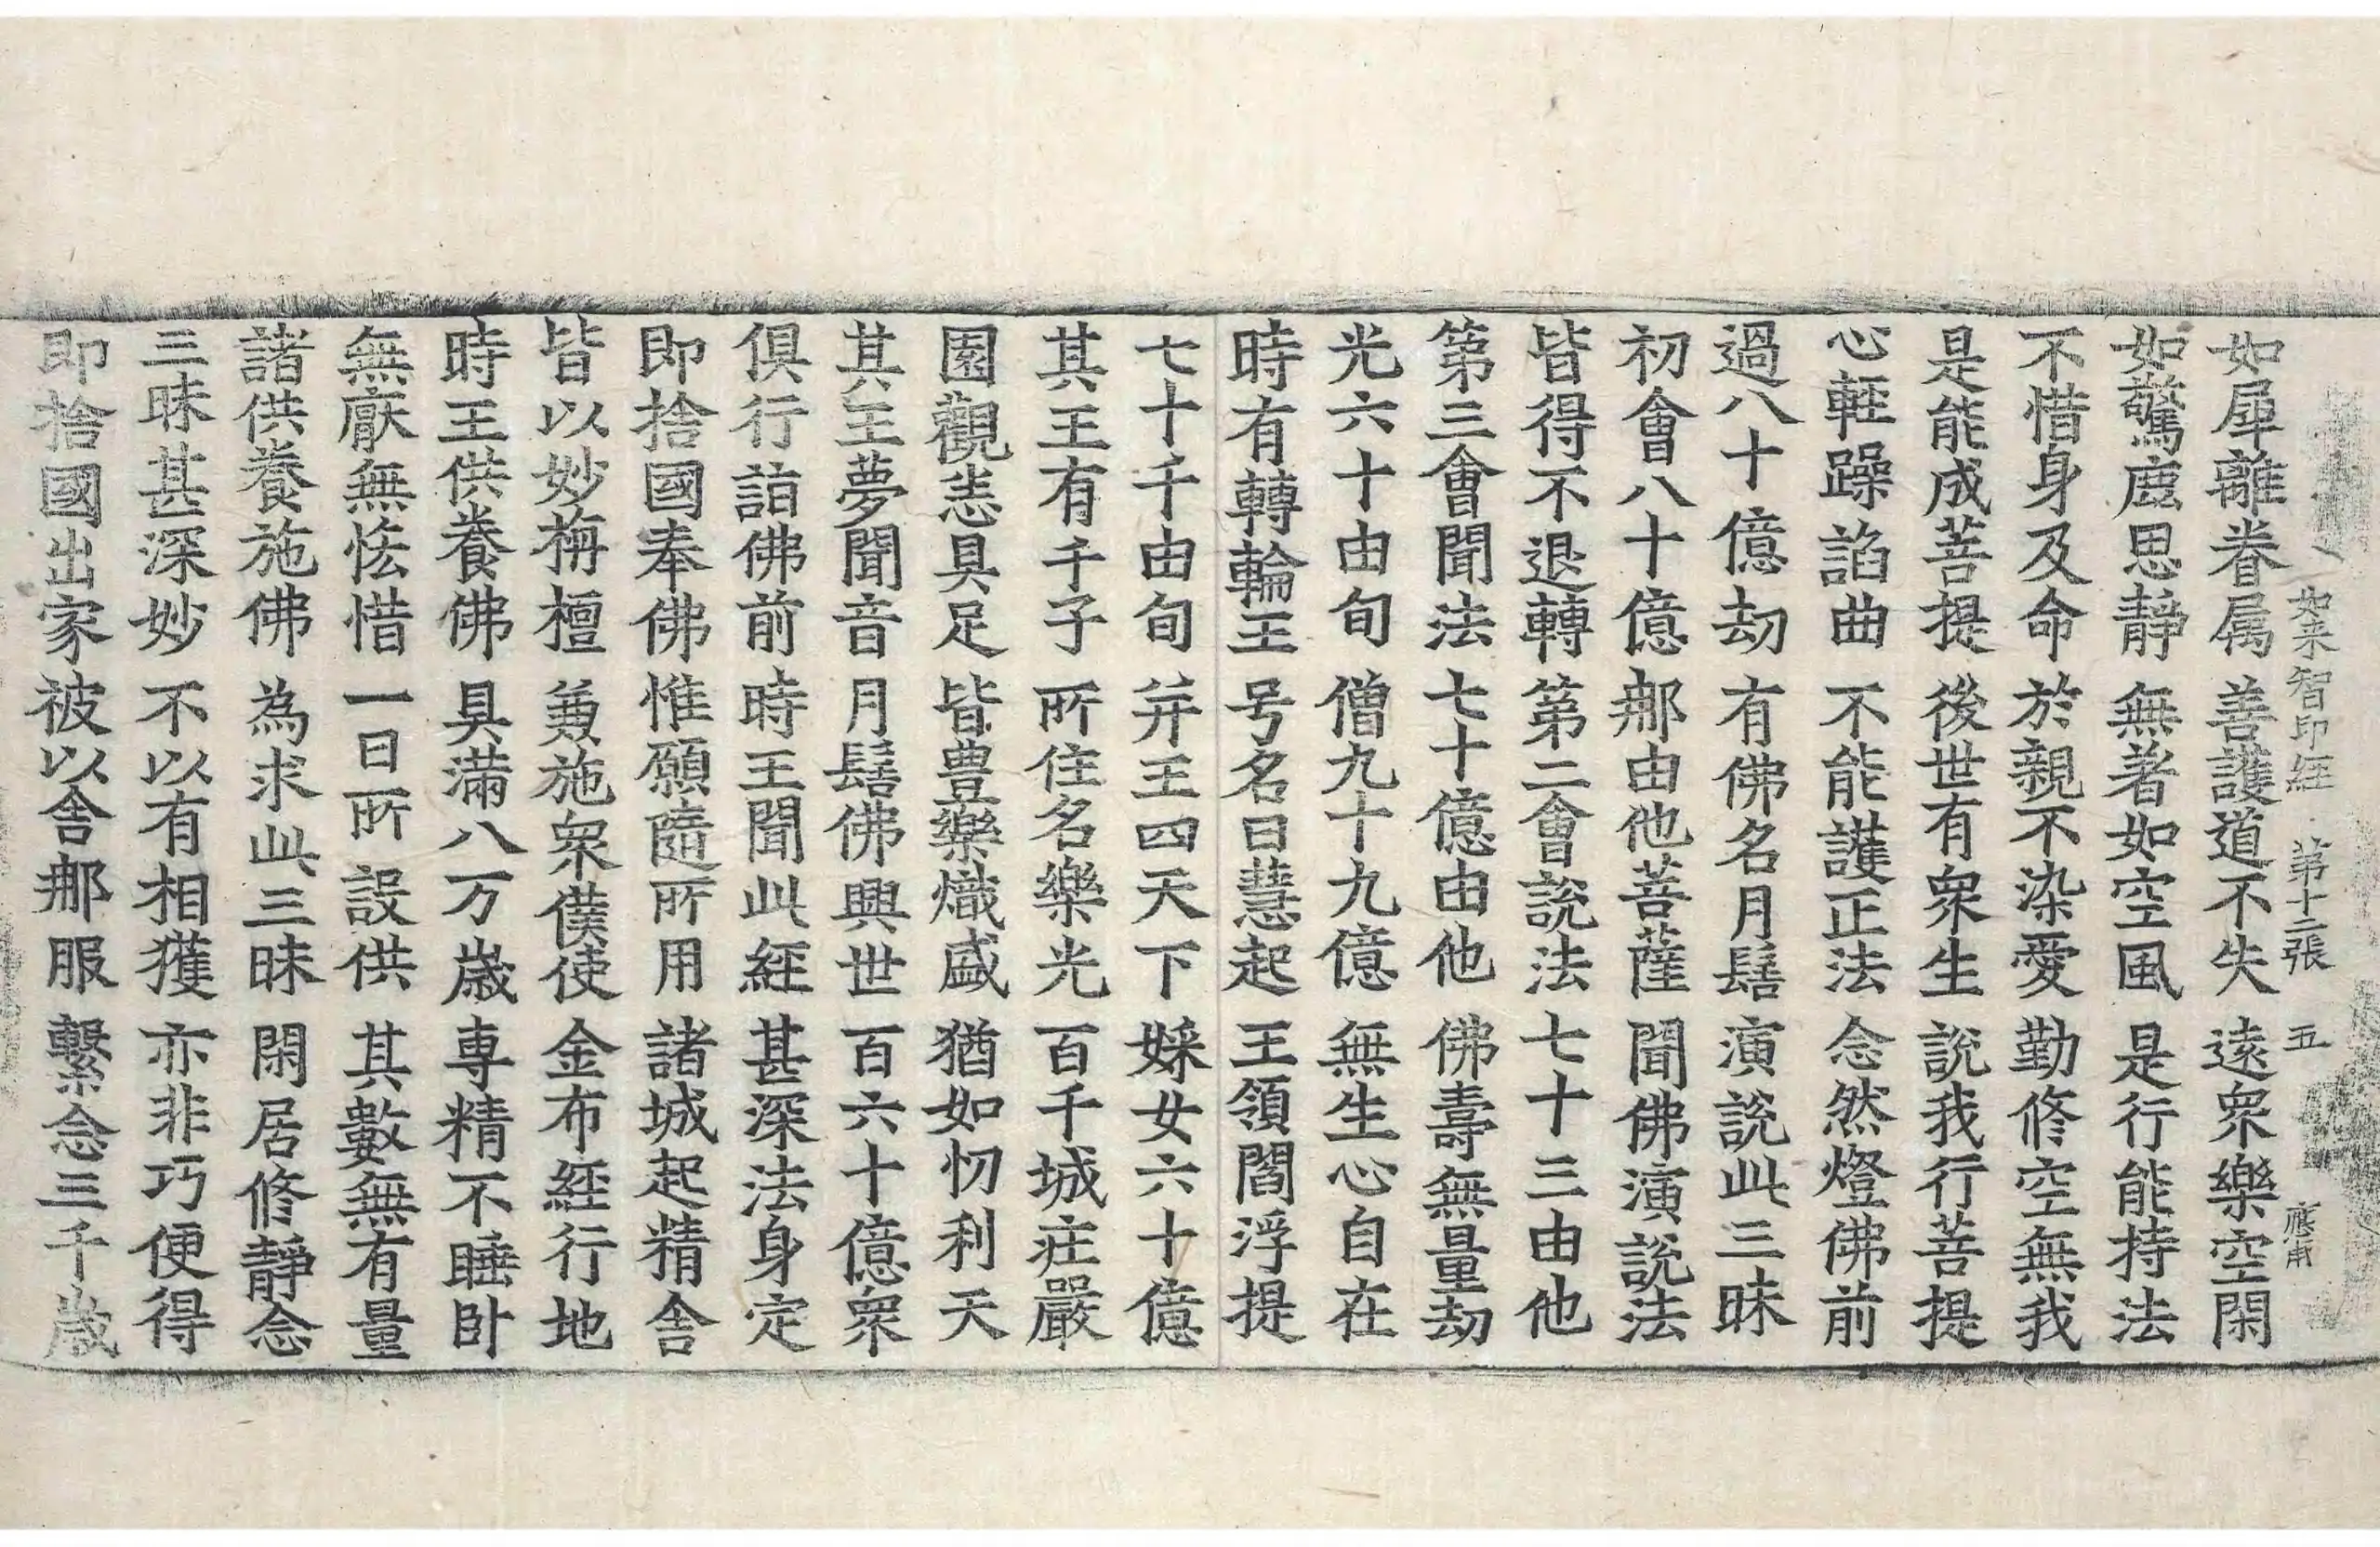 如来智印經 第十二張 五 應甫
如犀離眷属 善護道不失 遠衆樂空閑
如驚鹿思静 無著如空風 是行能持法
不惜身及命 於親不染愛 勤修空無我
是能成菩提 後世有衆生 說我行菩提
心輕躁諂曲 不能護正法 念然燈佛前
過八十億劫 有佛名月髻 演說此三昧
初會八十億 那由他菩薩 聞佛演說法
皆得不退轉 第二會說法 七十三由他
第三會聞法 七十億由他 佛壽無量劫
光六十由旬 僧九十九億 無生心自在
時有轉輪王 号名曰慧起 王領閻浮提
七十千由旬 并王四天下 婇女六十億
其王有千子 所住名樂光 百千城莊嚴
園觀悉具足 皆豊樂熾盛 猶如忉利天
其王夢聞音 月髻佛興世 百六十億衆
俱行詣佛前 時王聞此經 甚深法身定
即捨國奉佛 惟願隨所用 諸城起精舍
皆以妙栴檀 兼施衆僕使 金布經行地
時王供養佛 具滿八万歲 專精不睡卧
無厭無恡惜 一日所設供 其數無有量
諸供養施佛 為求此三昧 閑居修靜念
三昧甚深妙 不以有相獲 亦非巧便得
即捨國出家 被以舍那服 繫念三千歲